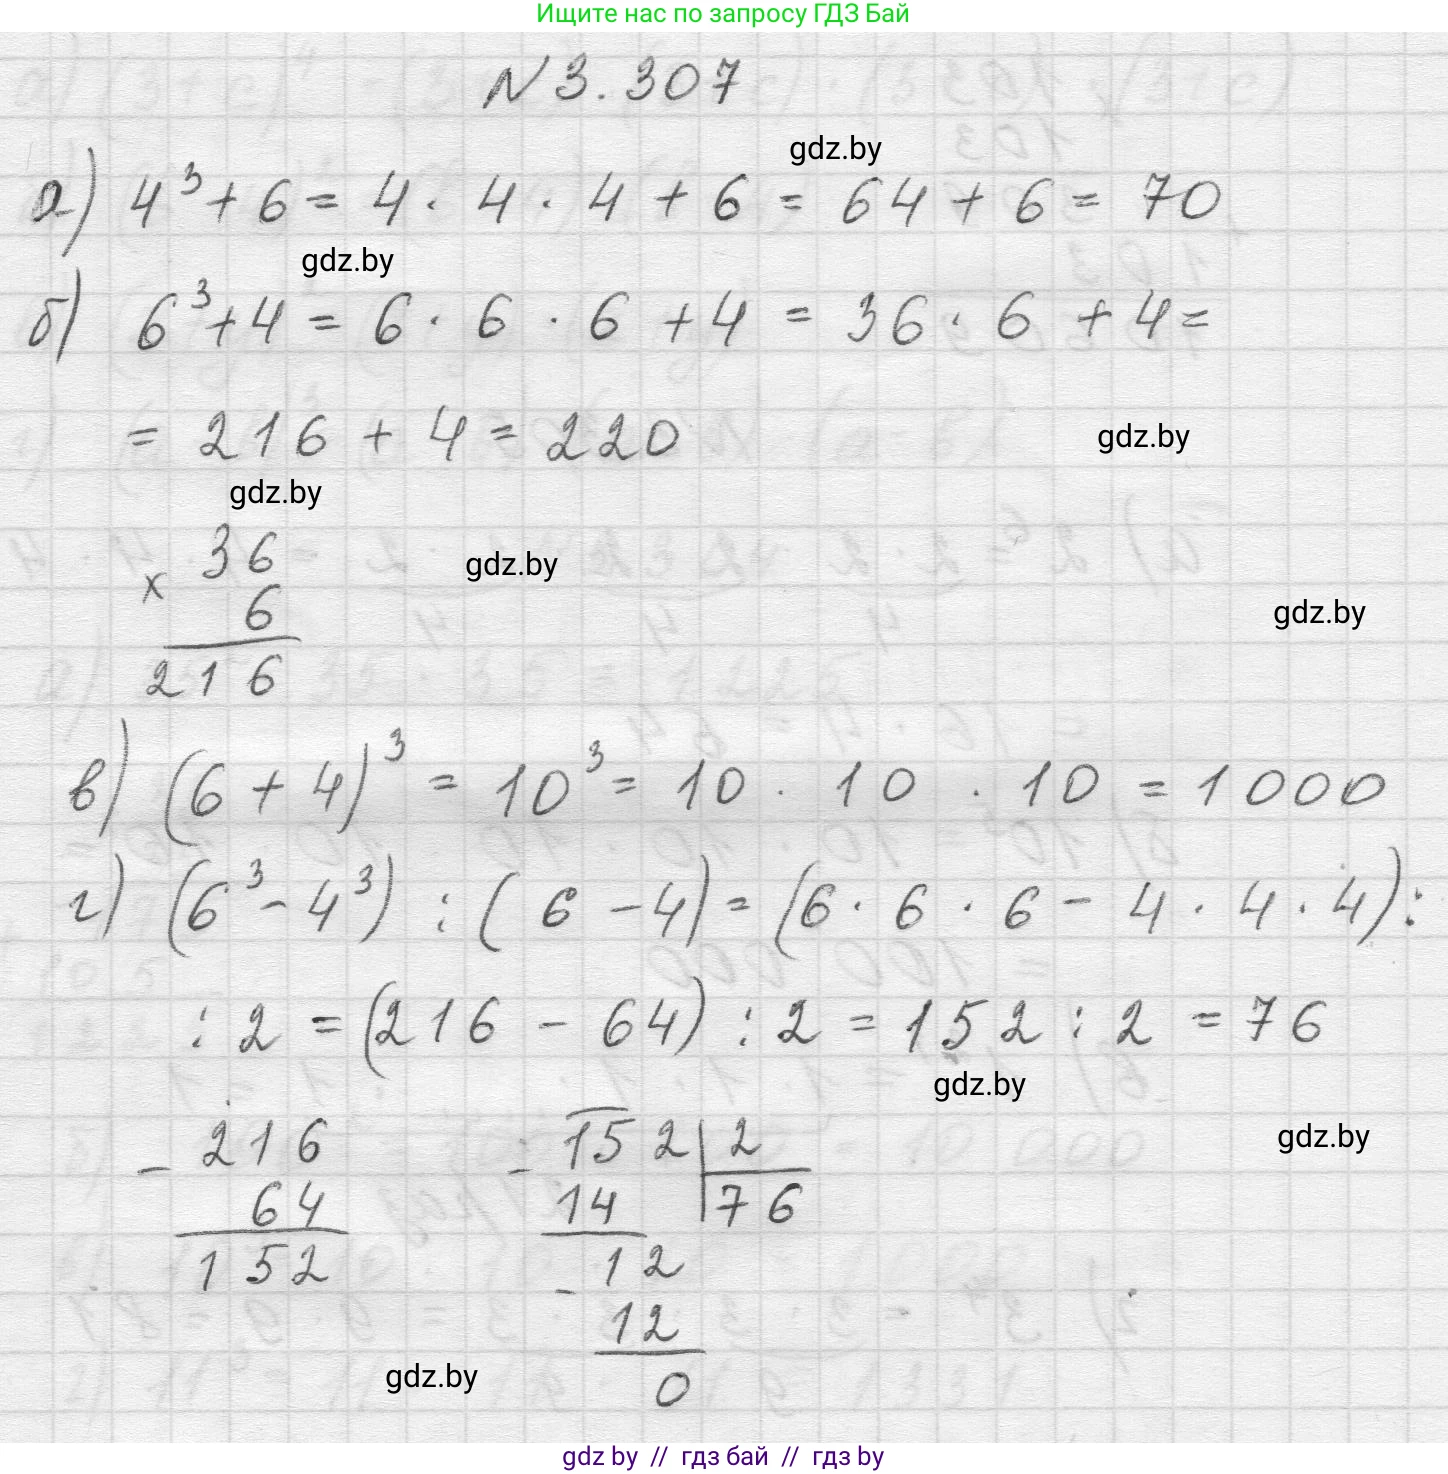 Ищите нас по запросу ГДЗ Бай
N 3.307
gdz.by
а) 4³ + 6 = 4 · 4 · 4 + 6 = 64 + 6 = 70
gdz.by
б) 6³ + 4 = 6 · 6 · 6 + 4 = 36 · 6 + 4 =
= 216 + 4 = 220
gdz.by
gdz.by
36
gdz.by
x 6
gdz.by
216
в) (6 + 4)³ = 10³ = 10 · 10 · 10 = 1000
г) (6³ - 4³) : (6 - 4) = (6 · 6 · 6 - 4 · 4 · 4) :
: 2 = (216 - 64) : 2 = 152 : 2 = 76
gdz.by
- 216 - 152 | 2
gdz.by
64 14 76
152 - 12
12
gdz.by
0
gdz by // гдз бай // гдз by